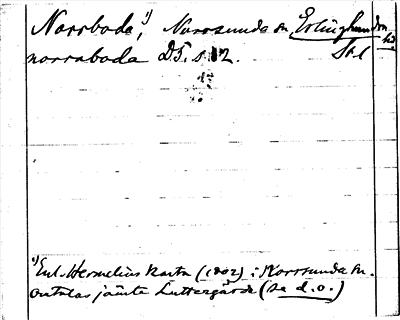 Norrboda,¹⁾ Norrsunda sn, Erlinghundra hd
norraboda DF. s. 12. Sthl
¹⁾ Enl. Hermelins karta (1802) i Norrsunda sn.
omtalas jämte Luttergärde (se d. o.)